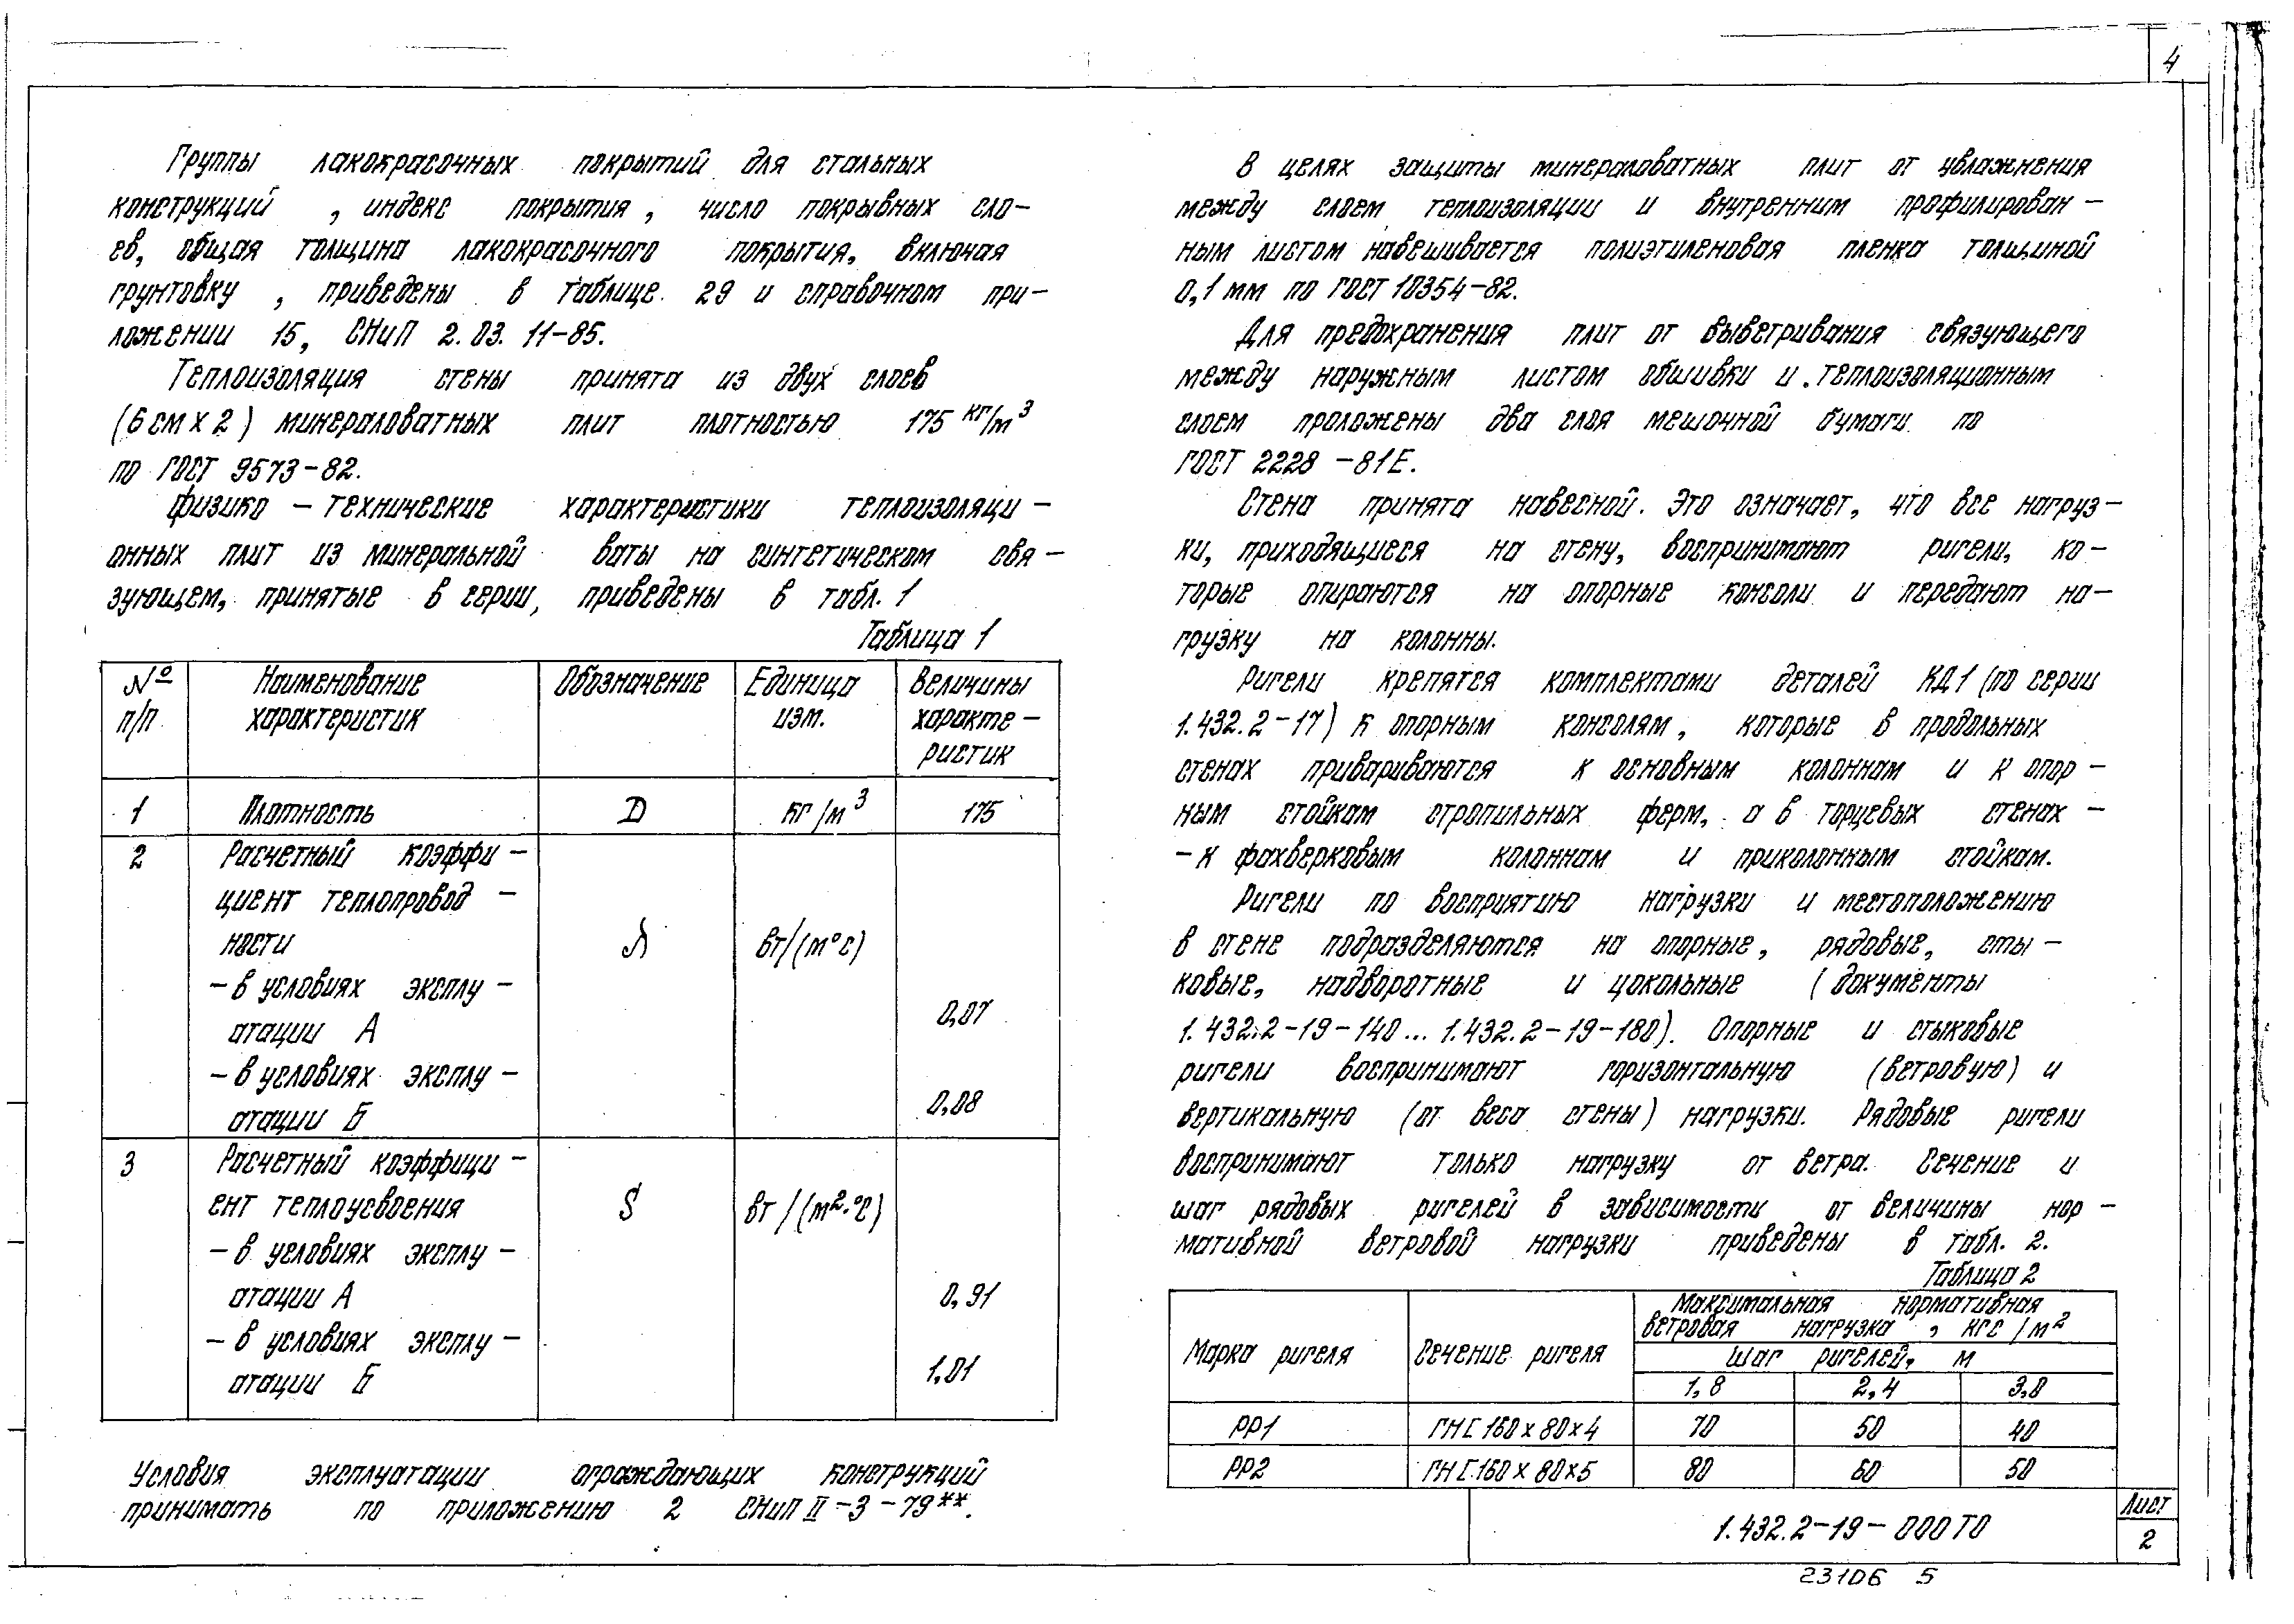 4
Группы лакокрасочных покрытий для стальных
конструкций, индекс покрытия, число покрывных сло-
ев, общая толщина лакокрасочного покрытия, включая
грунтовку, приведены в таблице 29 и справочном при-
ложении 15, СНиП 2.03.11-85.
Теплоизоляция стены принята из двух слоев
(6 см х 2) минераловатных плит плотностью 175 кг/м³
по ГОСТ 9573-82.
Физико-технические характеристики теплоизоляци-
онных плит из минеральной ваты на синтетическом свя-
зующем, принятые в серии, приведены в табл. 1
Таблица 1
№ п/п
Наименование характеристик
Обозначение
Единица изм.
Величины характе-ристик
1 Плотность D кг/м³ 175
2 Расчетный коэффи-
циент теплопровод-
ности λ вт/(м°с)
- в условиях эксплу-
атации А 0,07
- в условиях эксплу-
атации Б 0,08
3 Расчетный коэффици-
ент теплоусвоения S вт/(м²·°с)
- в условиях эксплу-
атации А 0,91
- в условиях эксплу-
атации Б 1,01
Условия эксплуатации ограждающих конструкций
принимать по приложению 2 СНиП II-3-79**.
В целях защиты минераловатных плит от увлажнения
между слоем теплоизоляции и внутренним профилирован-
ным листом навешивается полиэтиленовая пленка толщиной
0,1 мм по ГОСТ 10354-82.
Для предохранения плит от выветривания связующего
между наружным листом обшивки и теплоизоляционным
слоем проложены два слоя мешочной бумаги по
ГОСТ 2228-81Е.
Стена принята навесной. Это означает, что все нагруз-
ки, приходящиеся на стену, воспринимают ригели, ко-
торые опираются на опорные консоли и передают на-
грузку на колонны.
Ригели крепятся комплектами деталей КД1 (по серии
1.432.2-17) к опорным консолям, которые в продольных
стенах привариваются к основным колоннам и к опор-
ным стойкам стропильных ферм, а в торцевых стенах -
- к фахверковым колоннам и приколонным стойкам.
Ригели по восприятию нагрузки и местоположению
в стене подразделяются на опорные, рядовые, сты-
ковые, надворотные и цокольные (документы
1.432.2-19-140...1.432.2-19-180). Опорные и стыковые
ригели воспринимают горизонтальную (ветровую) и
вертикальную (от веса стены) нагрузки. Рядовые ригели
воспринимают только нагрузку от ветра. Сечение и
шаг рядовых ригелей в зависимости от величины нор-
мативной ветровой нагрузки приведены в табл. 2.
Таблица 2
Марка ригеля
Сечение ригеля
Максимальная нормативная
ветровая нагрузка, кгс/м²
Шаг ригелей, м
1,8 2,4 3,0
РР1 ГН[160х80х4 70 50 40
РР2 ГН[160х80х5 80 60 50
1.432.2-19-000ТО
Лист
2
23106 5